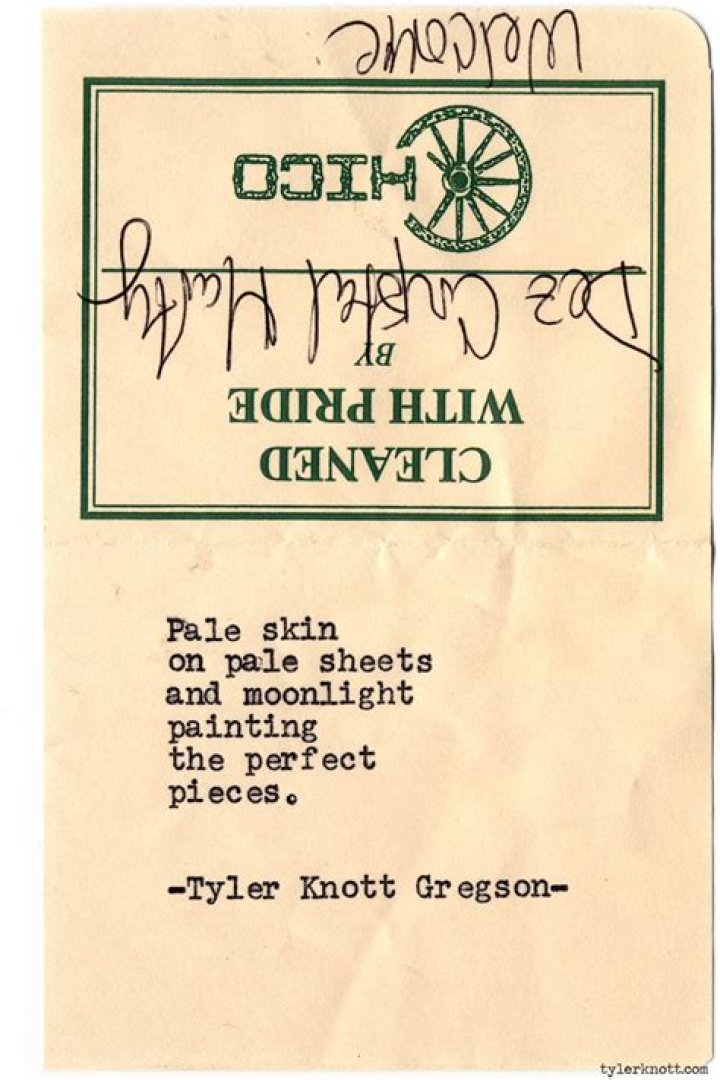 Welcome
CHICO
Dez Crystal Marty
BY
WITH PRIDE
CLEANED
Pale skin
on pale sheets
and moonlight
painting
the perfect
pieces.
-Tyler Knott Gregson-
tylerknott.com